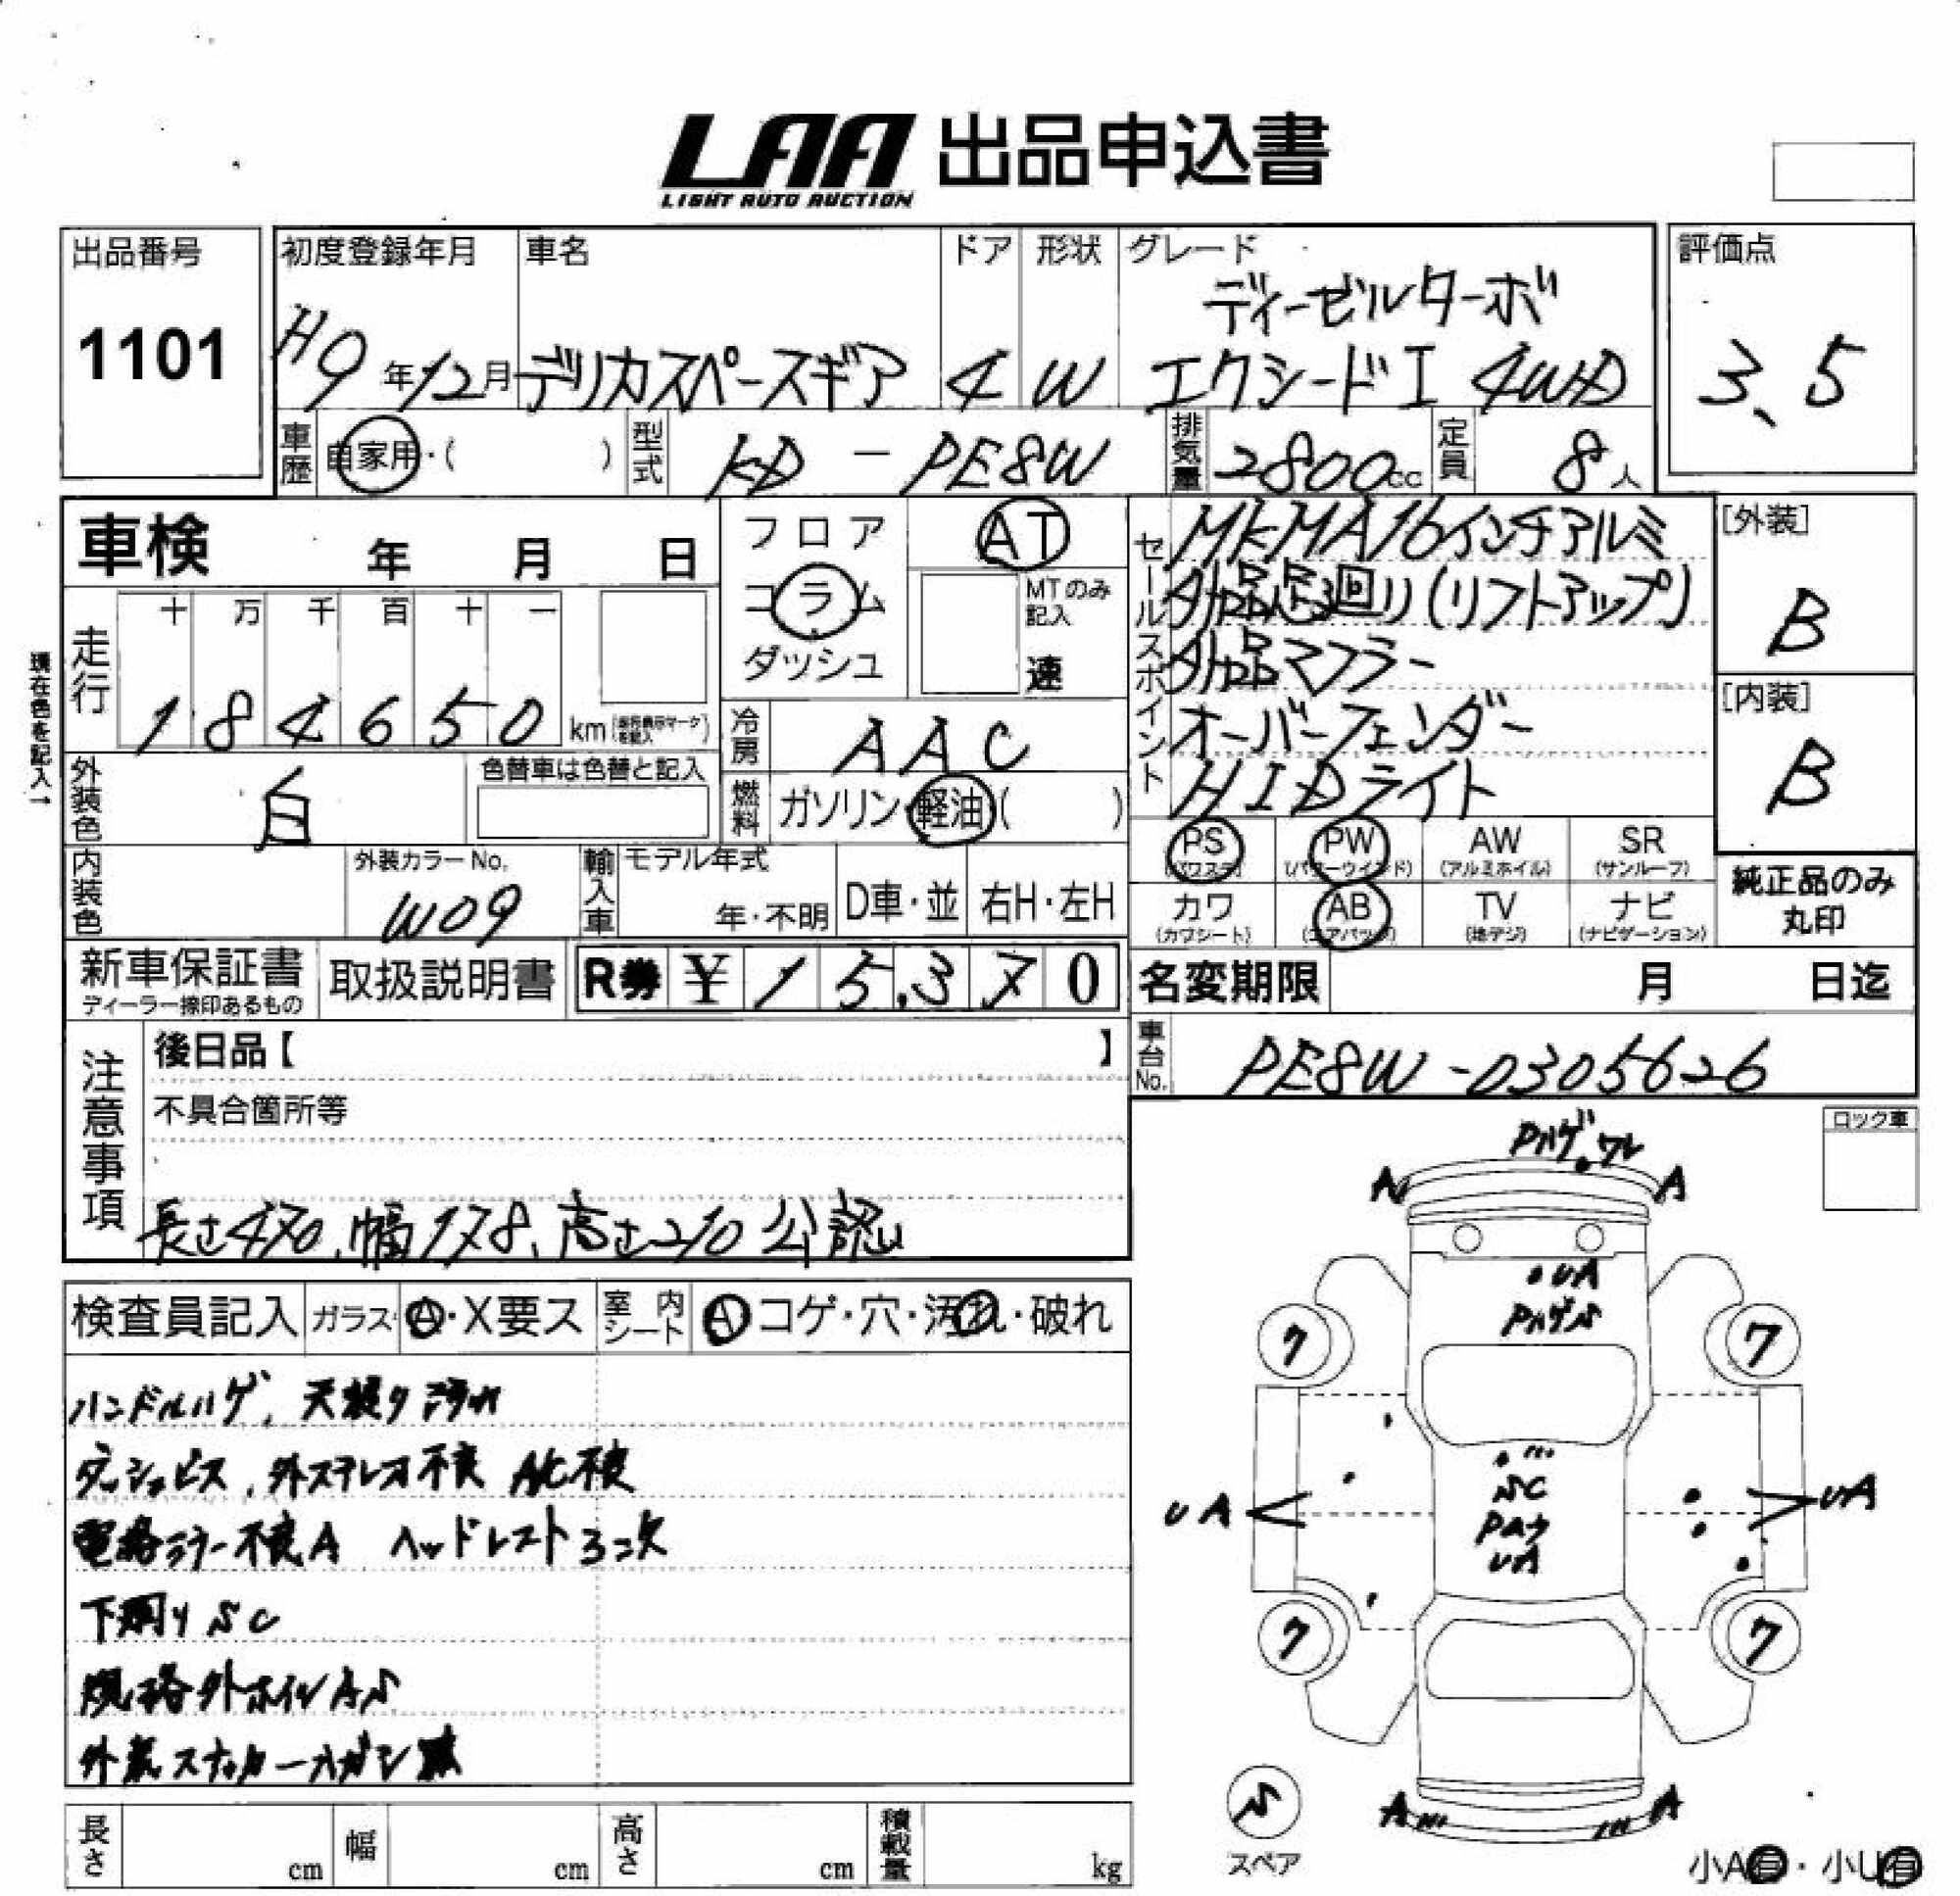 LAA 出品申込書
LIGHT AUTO AUCTION
出品番号
1101
初度登録年月
H9年12月
車名
デリカスペースギア
ドア
4
形状
W
グレード
ディーゼルターボ
エクシードI 4WD
評価点
3、5
車歴
自家用・( )
型式
KD-PE8W
排気量
2800cc
定員
8人
車検 年 月 日
フロア
コラム
ダッシュ
AT
MTのみ記入
速
セールスポイント
MKMA16インチアルミ
外品足回り(リフトアップ)
外品マフラー
オーバーフェンダー
HIDライト
[外装]
B
[内装]
B
現在色を記入→
走行
十 万 千 百 十 一
184650 km
冷房
AAC
外装色
白
色替車は色替と記入
燃料
ガソリン・軽油( )
内装色
外装カラーNo.
W09
輸入車
モデル年式
年・不明
D車・並
右H・左H
PS (パワステ)
PW (パワーウインド)
AW (アルミホイル)
SR (サンルーフ)
カワ (カワシート)
AB (エアバッグ)
TV (地デジ)
ナビ (ナビゲーション)
純正品のみ
丸印
新車保証書
ディーラー捺印あるもの
取扱説明書
R券 ¥15,370
名変期限 月 日迄
車台No.
PE8W-0305626
注意事項
後日品【 】
不具合箇所等
長さ470、幅178、高さ210 公認
ロック車
Pハゲ ワレ
A A
UA
PハゲS
7 7
SC
Pムラ
UA
UA UA
7 7
A A
S
スペア
小A有・小U有
検査員記入 ガラス A・X要ス 室内シート A コゲ・穴・汚れ・破れ
ハンドルハゲ、天張り汚れ
ダッシュビス、外ステレオ不良 A/C不良
電格ミラー不良A ヘッドレスト3コ欠
下廻りSC
規格外ホイルAS
外装ステッカーハガシ跡
長さ cm
幅 cm
高さ cm
積載量 kg